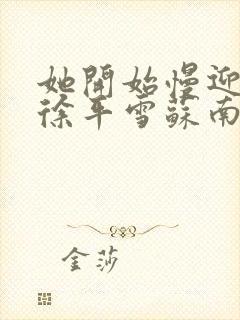 她開始慢迎
徐平雪蘇南
金莎